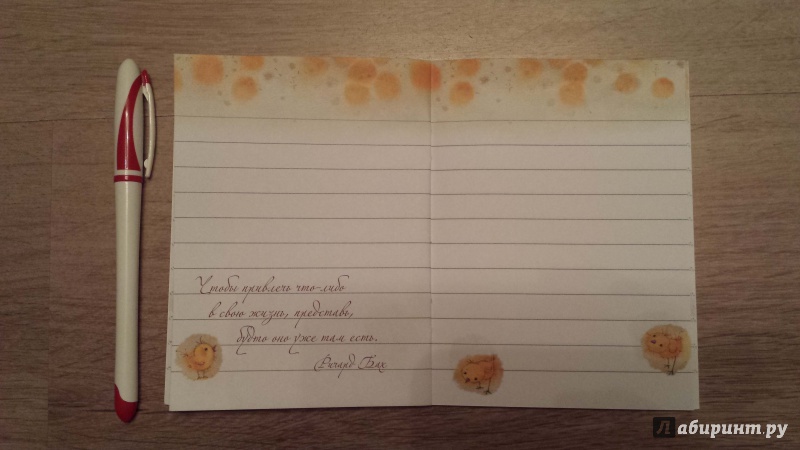 Чтобы привлечь что-либо
в свою жизнь, представь,
будто оно уже там есть.
Ричард Бах
Лабиринт.ру